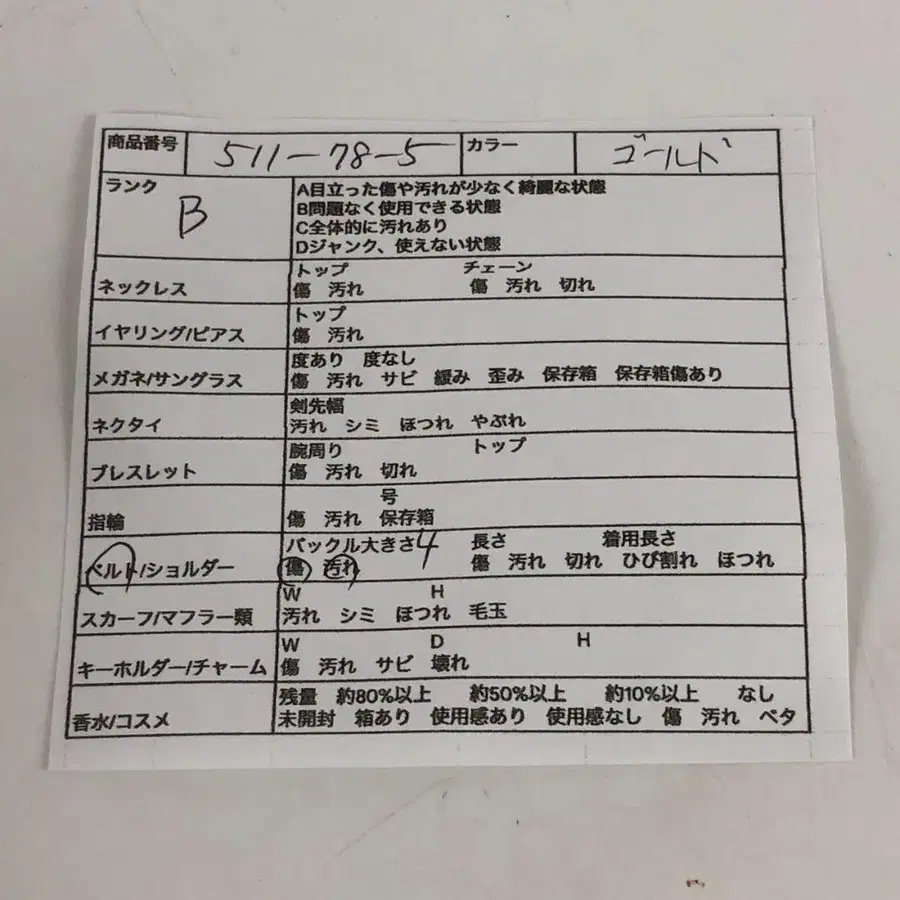 商品番号 511-78-5 カラー ゴールド
ランク B
A目立った傷や汚れが少なく綺麗な状態
B問題なく使用できる状態
C全体的に汚れあり
Dジャンク、使えない状態
ネックレス
トップ チェーン
傷 汚れ 傷 汚れ 切れ
イヤリング/ピアス
トップ
傷 汚れ
メガネ/サングラス
度あり 度なし
傷 汚れ サビ 緩み 歪み 保存箱 保存箱傷あり
ネクタイ
剣先幅
汚れ シミ ほつれ やぶれ
ブレスレット
腕周り トップ
傷 汚れ 切れ
指輪
号
傷 汚れ 保存箱
ベルト/ショルダー
バックル大きさ4 長さ 着用長さ
傷 汚れ 傷 汚れ 切れ ひび割れ ほつれ
スカーフ/マフラー類
W H
汚れ シミ ほつれ 毛玉
キーホルダー/チャーム
W D H
傷 汚れ サビ 壊れ
香水/コスメ
残量 約80%以上 約50%以上 約10%以上 なし
未開封 箱あり 使用感あり 使用感なし 傷 汚れ ベタ